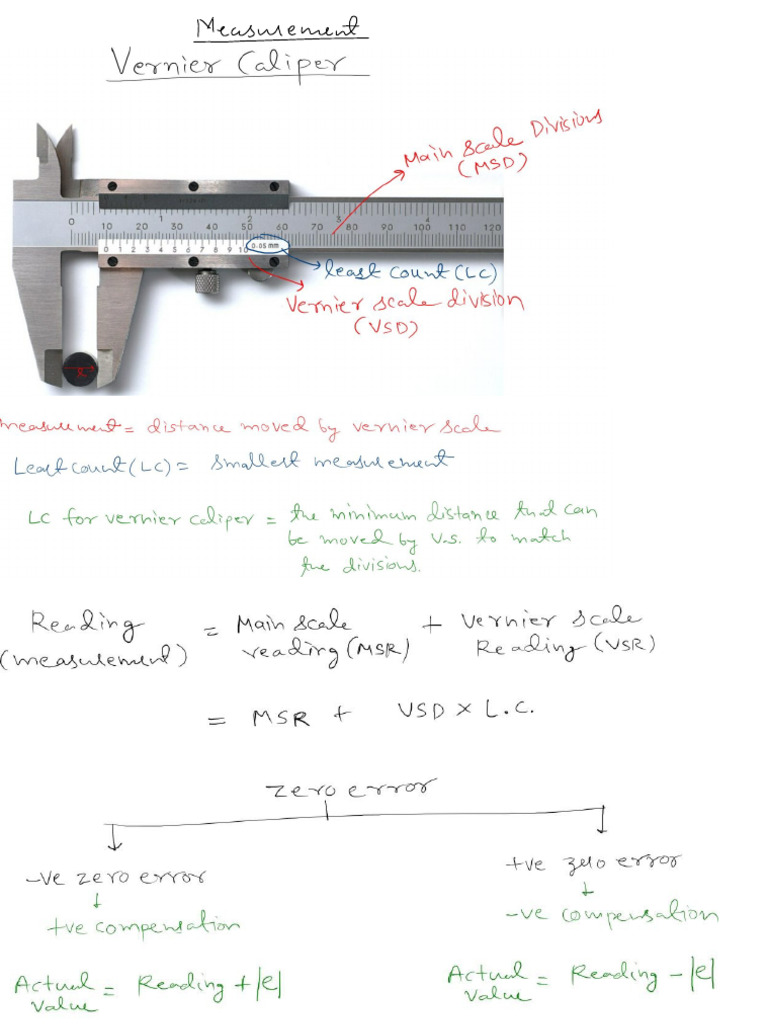 Measurement
Vernier Caliper
Main Scale Divisions
(MSD)
0 1 2 3 4
10 20 30 40 50 60 70 80 90 100 110 120
0 1 2 3 4 5 6 7 8 9 10 0.05 mm
least count (LC)
Vernier scale division
(VSD)
Measurement = distance moved by vernier scale
Least count (LC) = smallest measurement
LC for vernier caliper = the minimum distance that can
be moved by V.S. to match
the divisions.
Reading = Main scale + Vernier scale
(measurement) reading (MSR) Reading (VSR)
= MSR + VSD × L.C.
Zero error
-ve zero error +ve zero error
+ve compensation -ve compensation
Actual Value = Reading + |e|
Actual Value = Reading - |e|